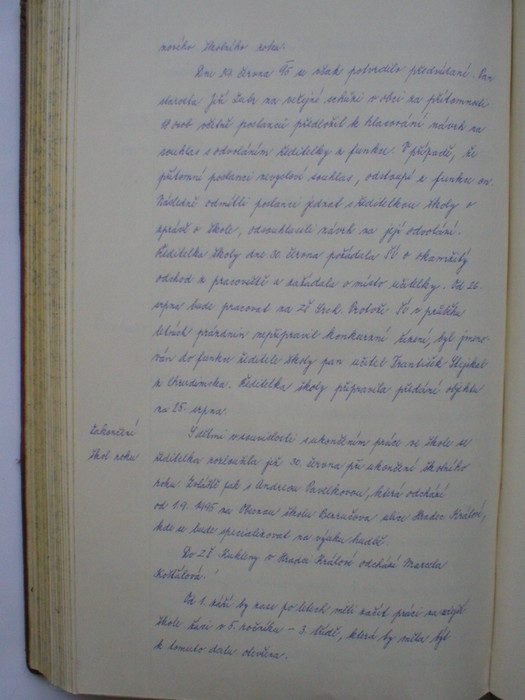 nového školního roku.
Dne 29. června 95 se však potvrdilo předvídání. Pan
starosta Jiří Lukr na veřejné schůzi v obci za přítomnosti
osob včetně poslanců předložil k hlasování návrh na
souhlas s odvoláním ředitelky z funkce. V případě, že
přítomní poslanci nevysloví souhlas, odstoupí z funkce on.
Následně odmítli poslanci jednat s ředitelkou školy o
zprávě o škole, odsouhlasili návrh na její odvolání.
Ředitelka školy dne 30. června požádala ŠÚ o okamžitý
odchod z pracoviště a zažádala o místo učitelky. Od 26.
srpna bude pracovat na ZŠ Protože ŠÚ v průběhu
letních prázdnin nepřipravil konkurzní řízení, byl jmeno-
ván do funkce ředitele školy pan učitel František Stejskal
z Chrudimska. Ředitelka školy připravila předání objektu
na 25. srpna.
Zakončení
škol. roku
S dětmi v souvislosti s ukončením práce ve škole se
ředitelka rozloučila již 30. června při ukončení školního
roku. Zvláště pak s Andreou Pavelkovou, která odchází
od 1.9. 1995 na školu Bezručova ulice Hradec Králové,
kde se bude specializovat na výuku hudby.
Do ZŠ Kukleny v Hradci Králové odchází Marcela
Košťálová.
Od 1. září by zase po letech měli začít práce na zdejší
škole žáci v 5. ročníku – 3. třídě, která by měla být
k tomuto datu otevřena.